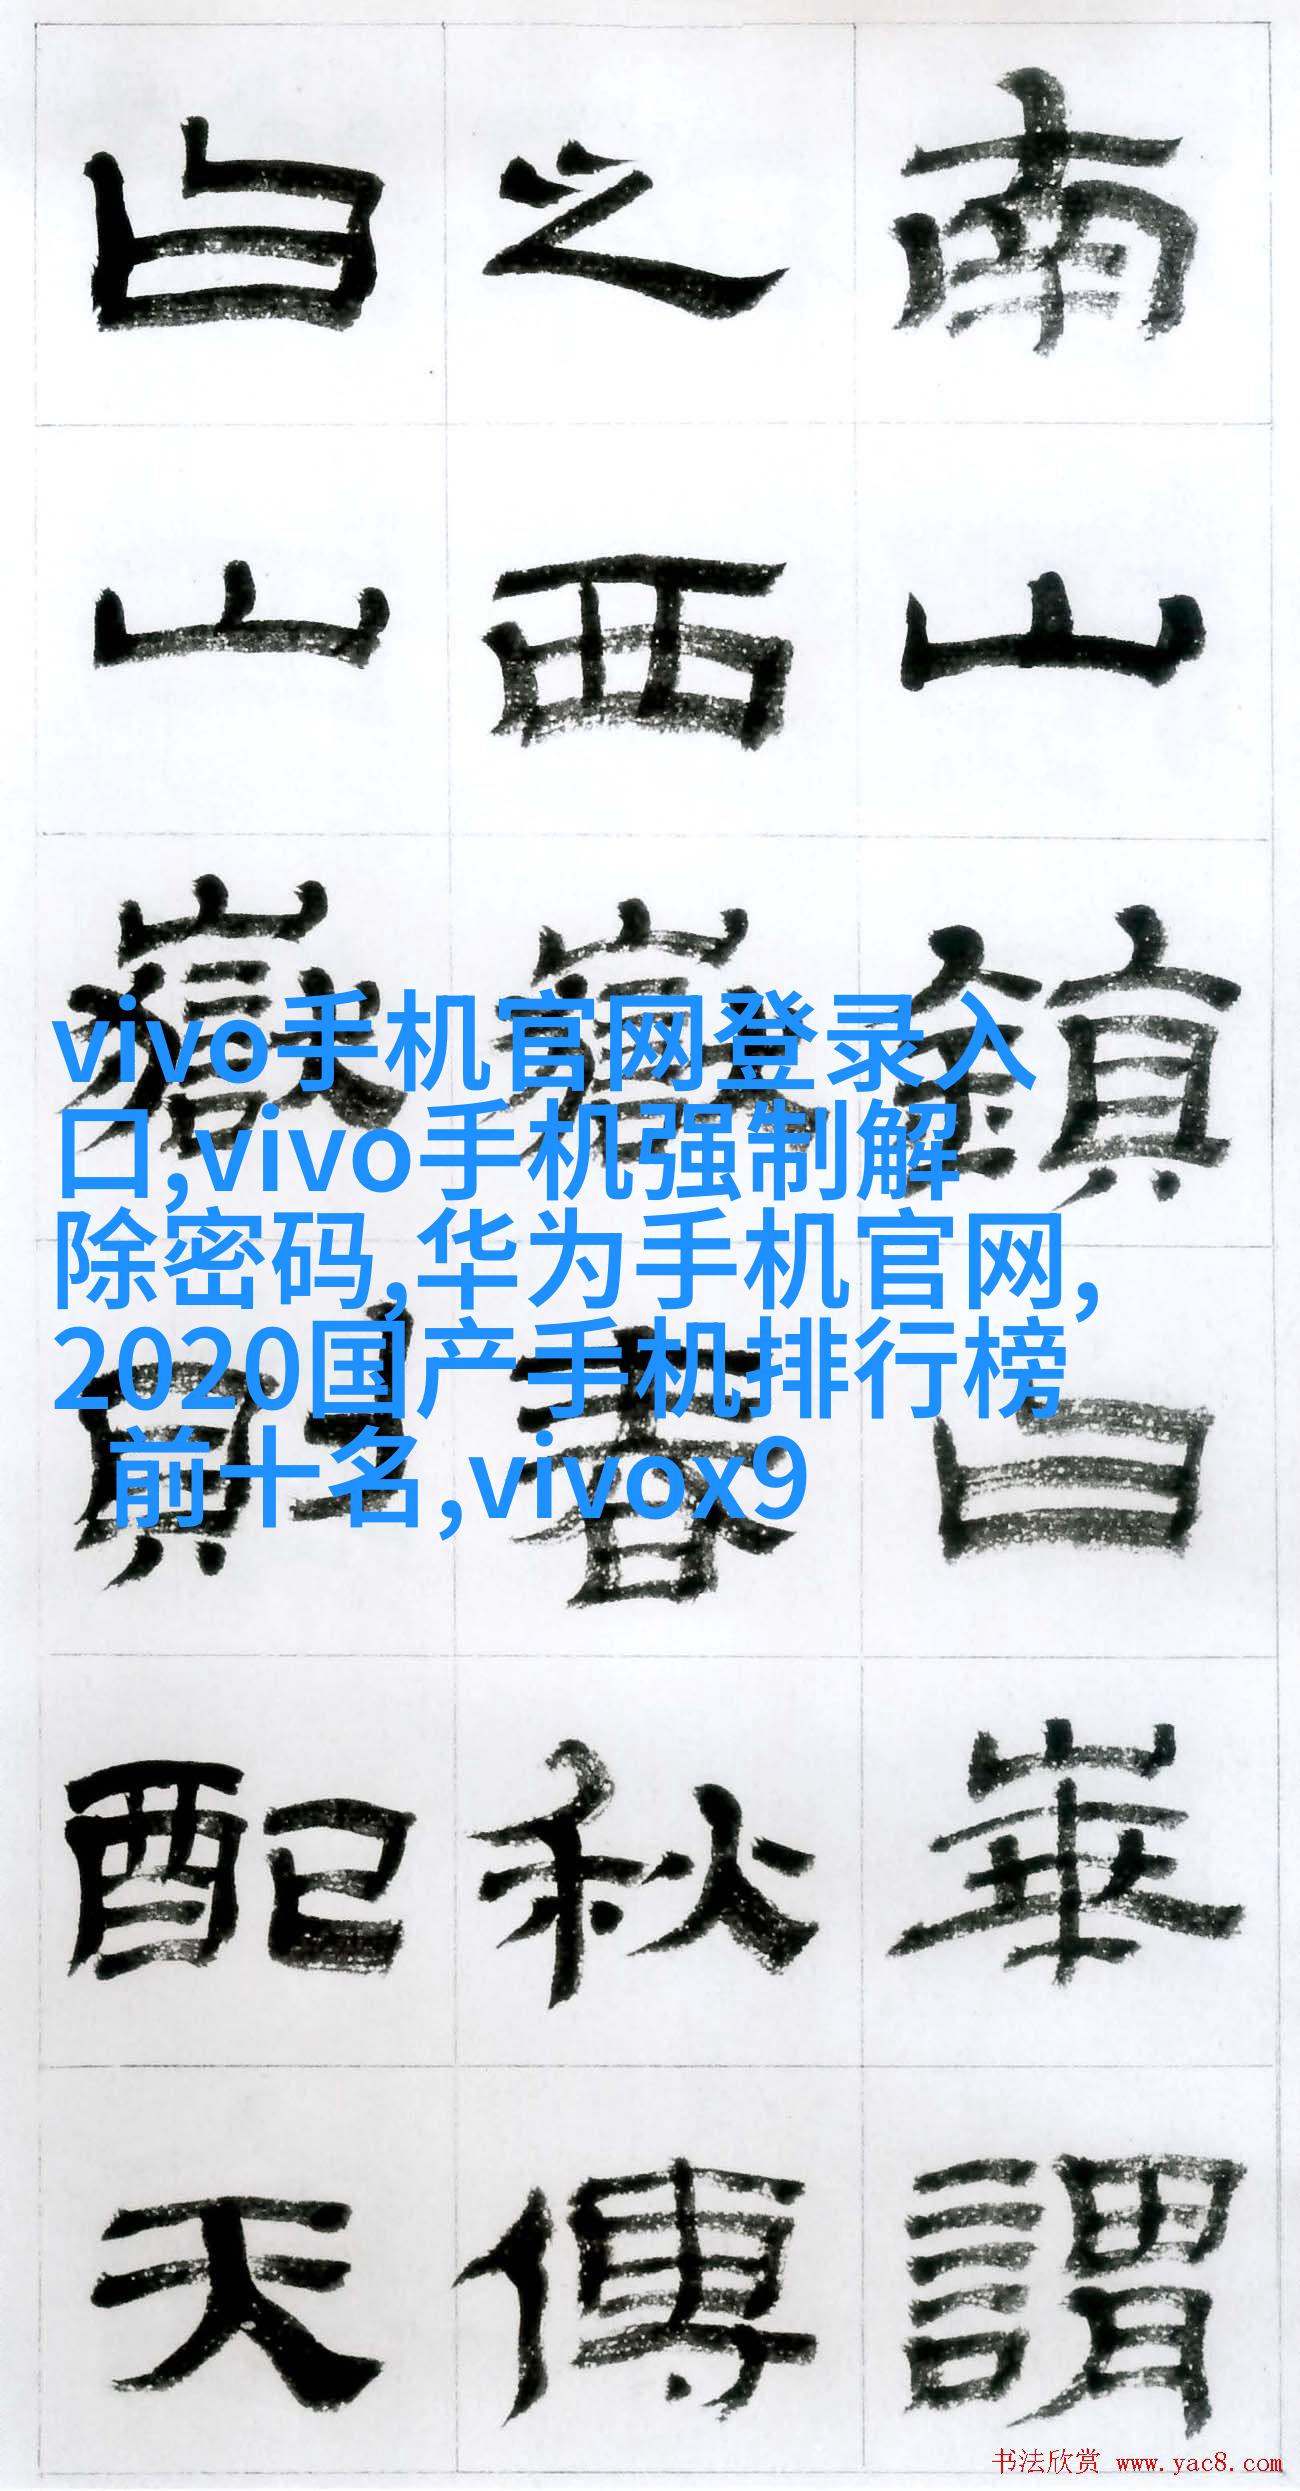 南山鎮曰華謂
之西嶽春秋傳
曰山嶽則配天
vivo手机官网登录入
口,vivo手机强制解
除密码,华为手机官网,
2020国产手机排行榜
前十名,vivox9
书法欣赏 www.yac8.com